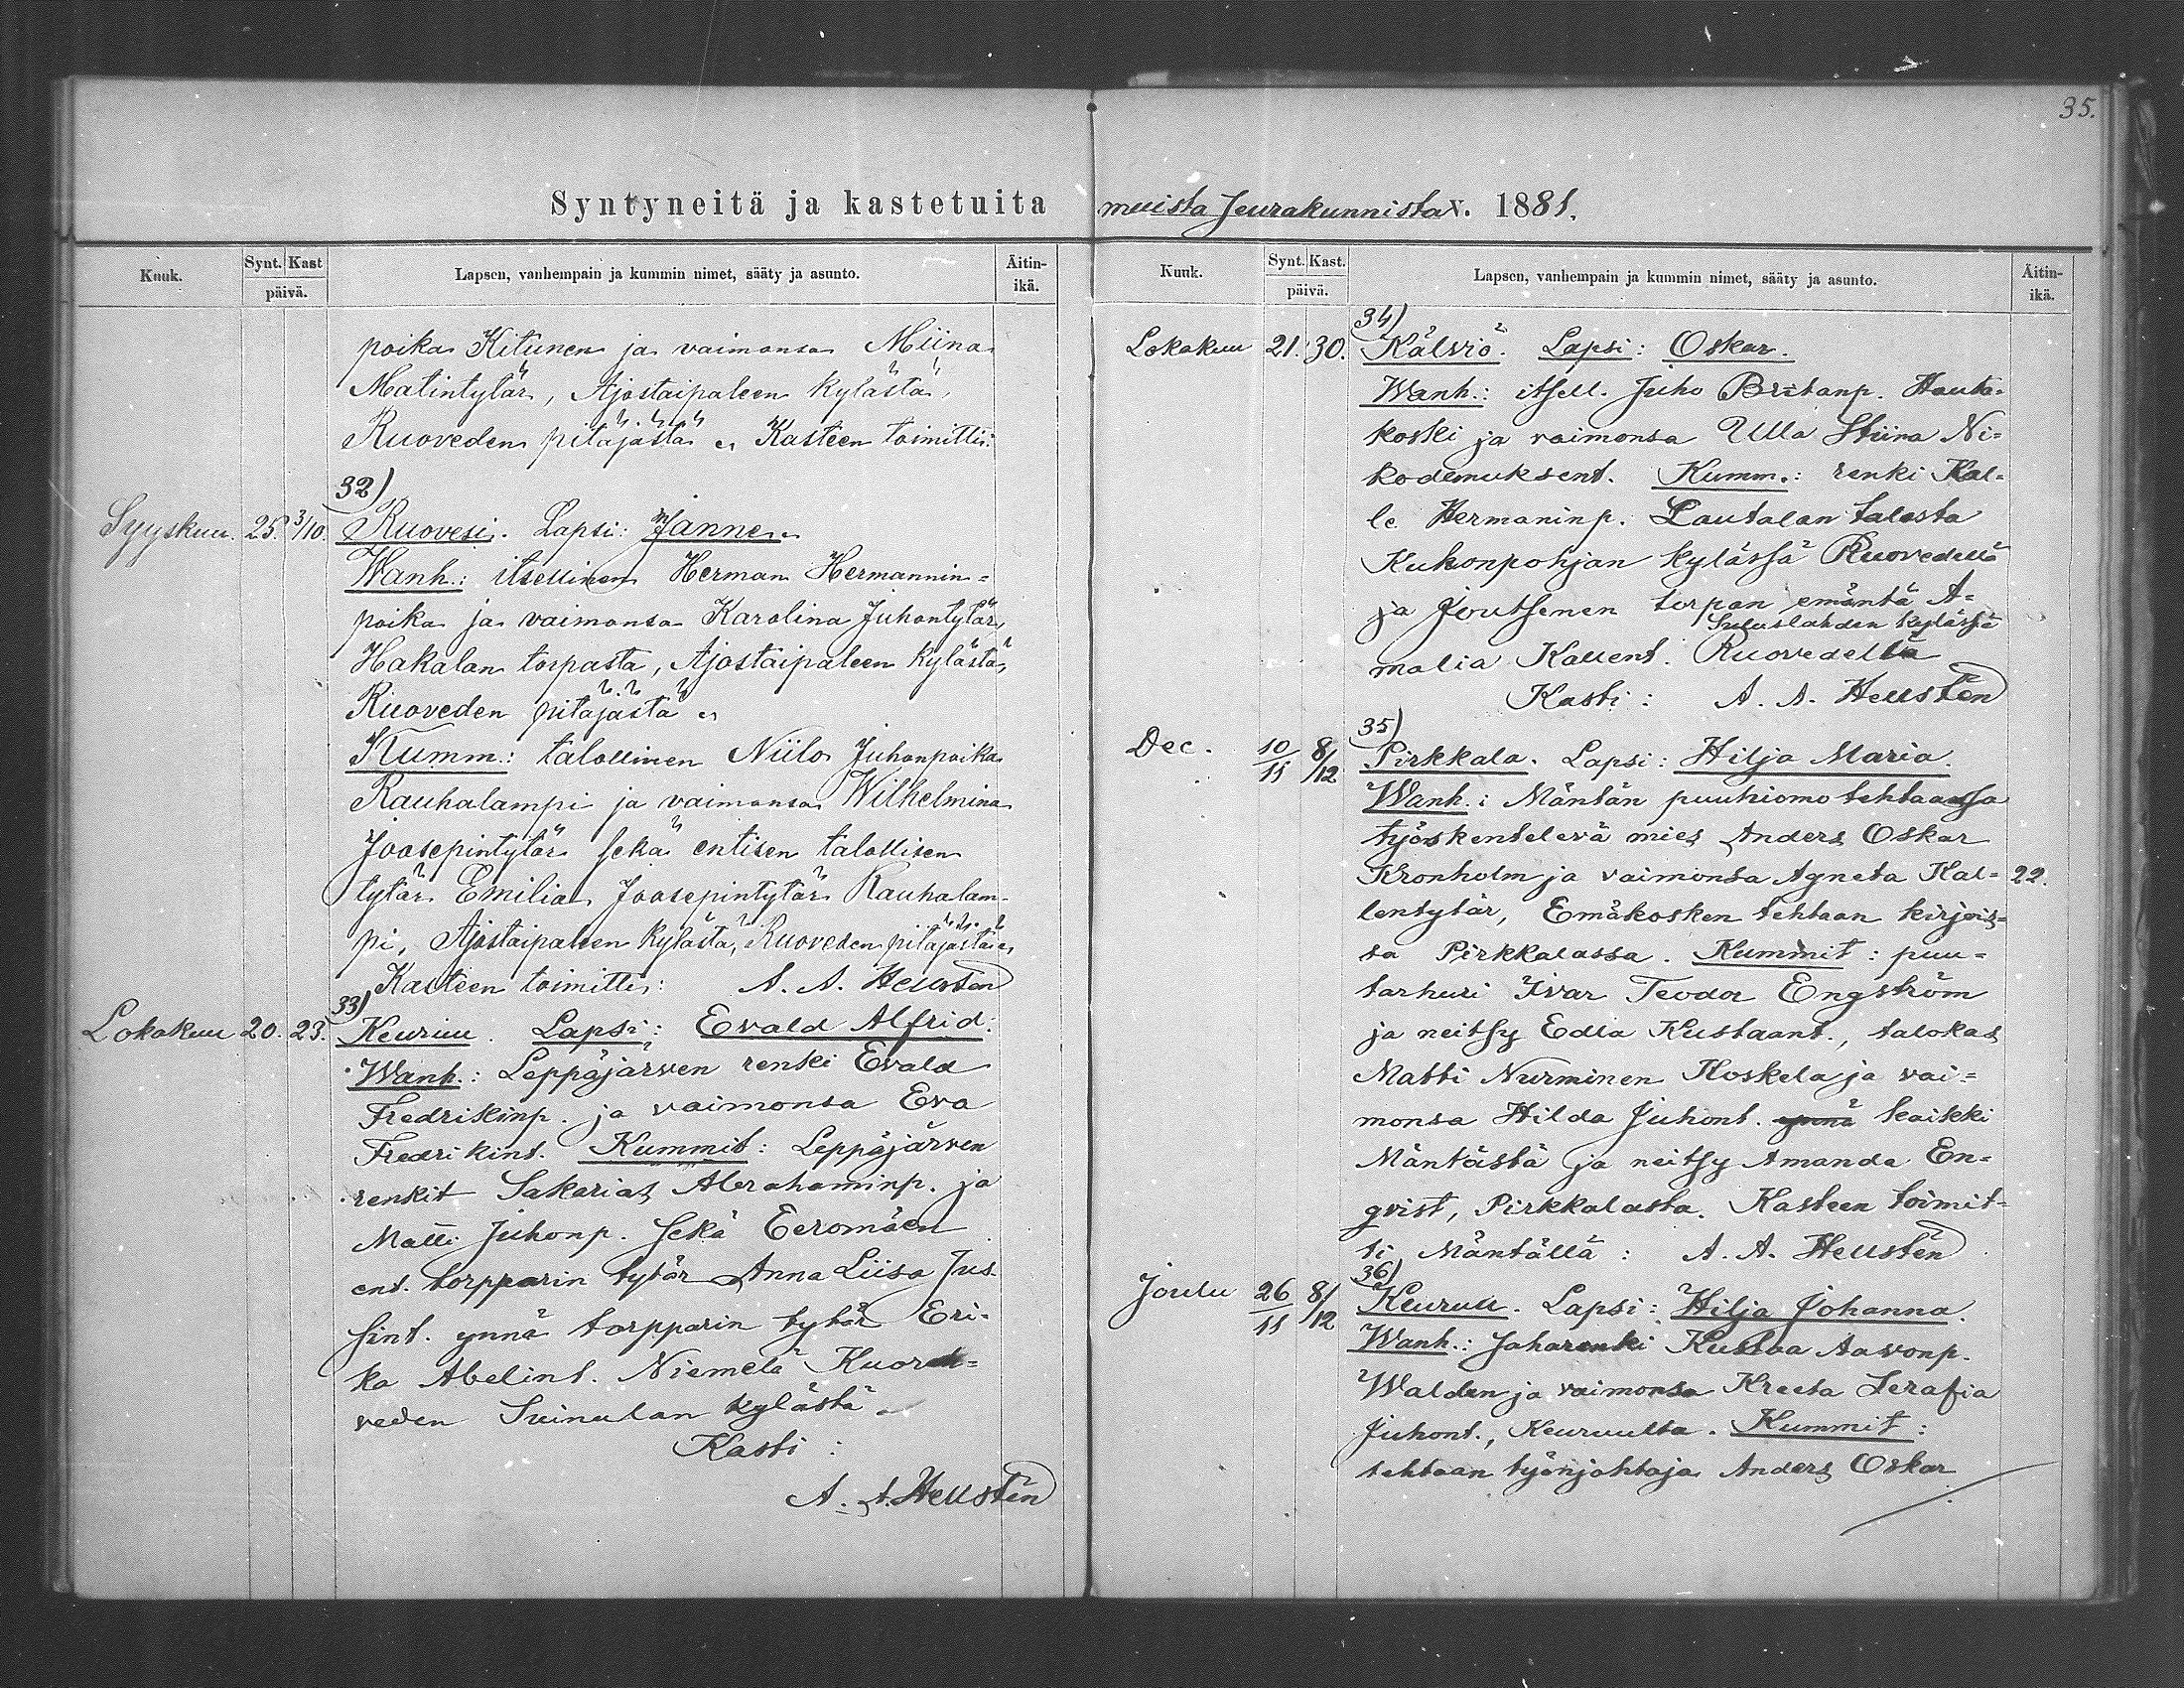 35.
Syntyneitä ja kastetuita muista seurakunnista v. 1881.
Kuuk. Synt. Kast päivä. Lapsen, vanhempain ja kummin nimet, sääty ja asunto. Äitin-ikä.
poika Kitunen ja vaimonsa Miina
Matintytär, Ajostaipaleen kylästä,
Ruoveden pitäjästä. Kasteen toimitti:
32)
Syyskuu. 25. 3/10. Ruovesi. Lapsi: Janne.
Wanh.: itsellinen Herman Hermannin-
poika ja vaimonsa Karolina Juhontytär,
Hakalan torpasta, Ajostaipaleen kylästä,
Ruoveden pitäjästä.
Kumm.: talollinen Niilo Juhonpoika
Rauhalampi ja vaimonsa Wilhelmina
Joosepintytär sekä entisen talollisen
tytär Emilia Joosepintytär Rauhalam-
pi, Ajostaipaleen kylästä, Ruoveden pitäjästä.
Kasteen toimitti: A. A. Hellstén
33)
Lokakuu 20. 23. Keuruu. Lapsi: Evald Alfrid.
Wanh.: Leppäjärven renki Evald
Fredrikinp. ja vaimonsa Eva
Fredrikint. Kummit: Leppäjärven
renkit Sakarias Abrahaminp. ja
Matti Juhonp. sekä Eeromäen
ent. torpparin tytär Anna Liisa Jus-
sint. ynnä torpparin tytär Eri-
ka Abelint. Niemelä Kuore-
veden Suinulan kylästä.
Kasti:
A. A. Hellstén
Kuuk. Synt. Kast. päivä. Lapsen, vanhempain ja kummin nimet, sääty ja asunto. Äitin-ikä.
34)
Lokakuu 21. 30. Kälviö. Lapsi: Oskar.
Wanh.: itsell. Juho Hauta-
koski ja vaimonsa Ulla Stiina Ni-
kodemuksent. Kumm.: renki Kal-
le Hermaninp. Lautalan talosta
Kukonpohjan kylässä Ruovedellä
ja Joutsenen torpan emäntä A-
Suluslahden kylässä
malia Kallent. Ruovedellä
Kasti: A. A. Hellstén
35)
Dec. 10/11 8/12 Pirkkala. Lapsi: Hilja Maria.
Wanh.: Mäntän puuhiomo tehtaassa
työskentelevä mies Anders Oskar
Kronholm ja vaimonsa Agneta Kal- 22.
lentytär, Emäkosken tehtaan kirjois-
sa Pirkkalassa. Kummit: puu-
tarhuri Ivar Teodor Engström
ja neitsy Edla Kustaant., talokas
Matti Nurminen Koskela ja vai-
monsa Hilda Juhont. ynnä kaikki
Mäntästä ja neitsy Amanda En-
gvist, Pirkkalasta. Kasteen toimit-
ti Mäntällä: A. A. Hellstén
36)
Joulu 26/11 8/12 Keuruu. Lapsi: Hilja Johanna.
Wanh.: saharenki Kustaa Aavonp.
Walden ja vaimonsa Kreeta Serafia
Juhont., Keuruulta. Kummit:
tehtaan työnjohtaja Anders Oskar